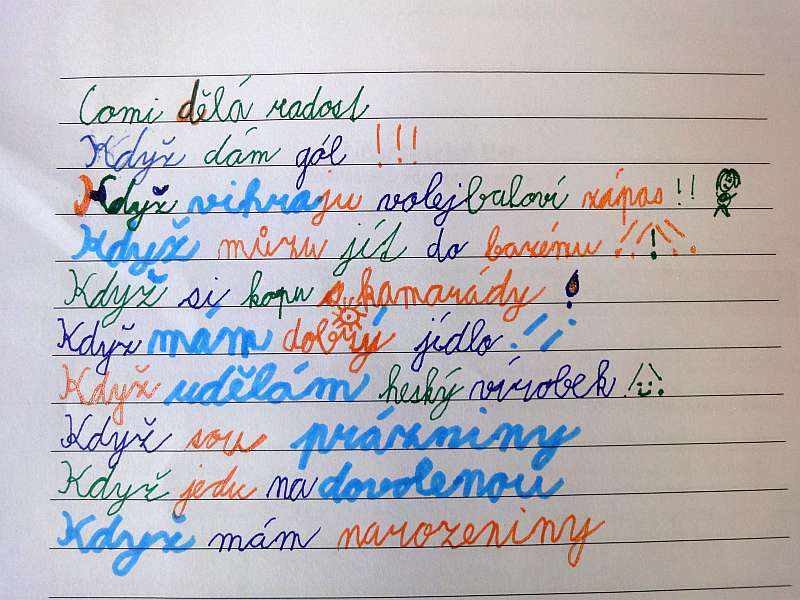 Comi dělá radost
Když dám gól !!!
Když vihraju volejbaloví zápas !!
Když můzu jít do bazénu !!!!!
Když si kopu s kamarády !
Když mám dobrý jídlo !!
Když udělám heský výrobek !!
Když sou prázniny
Když jedu na dovolenou
Když mám narozeniny